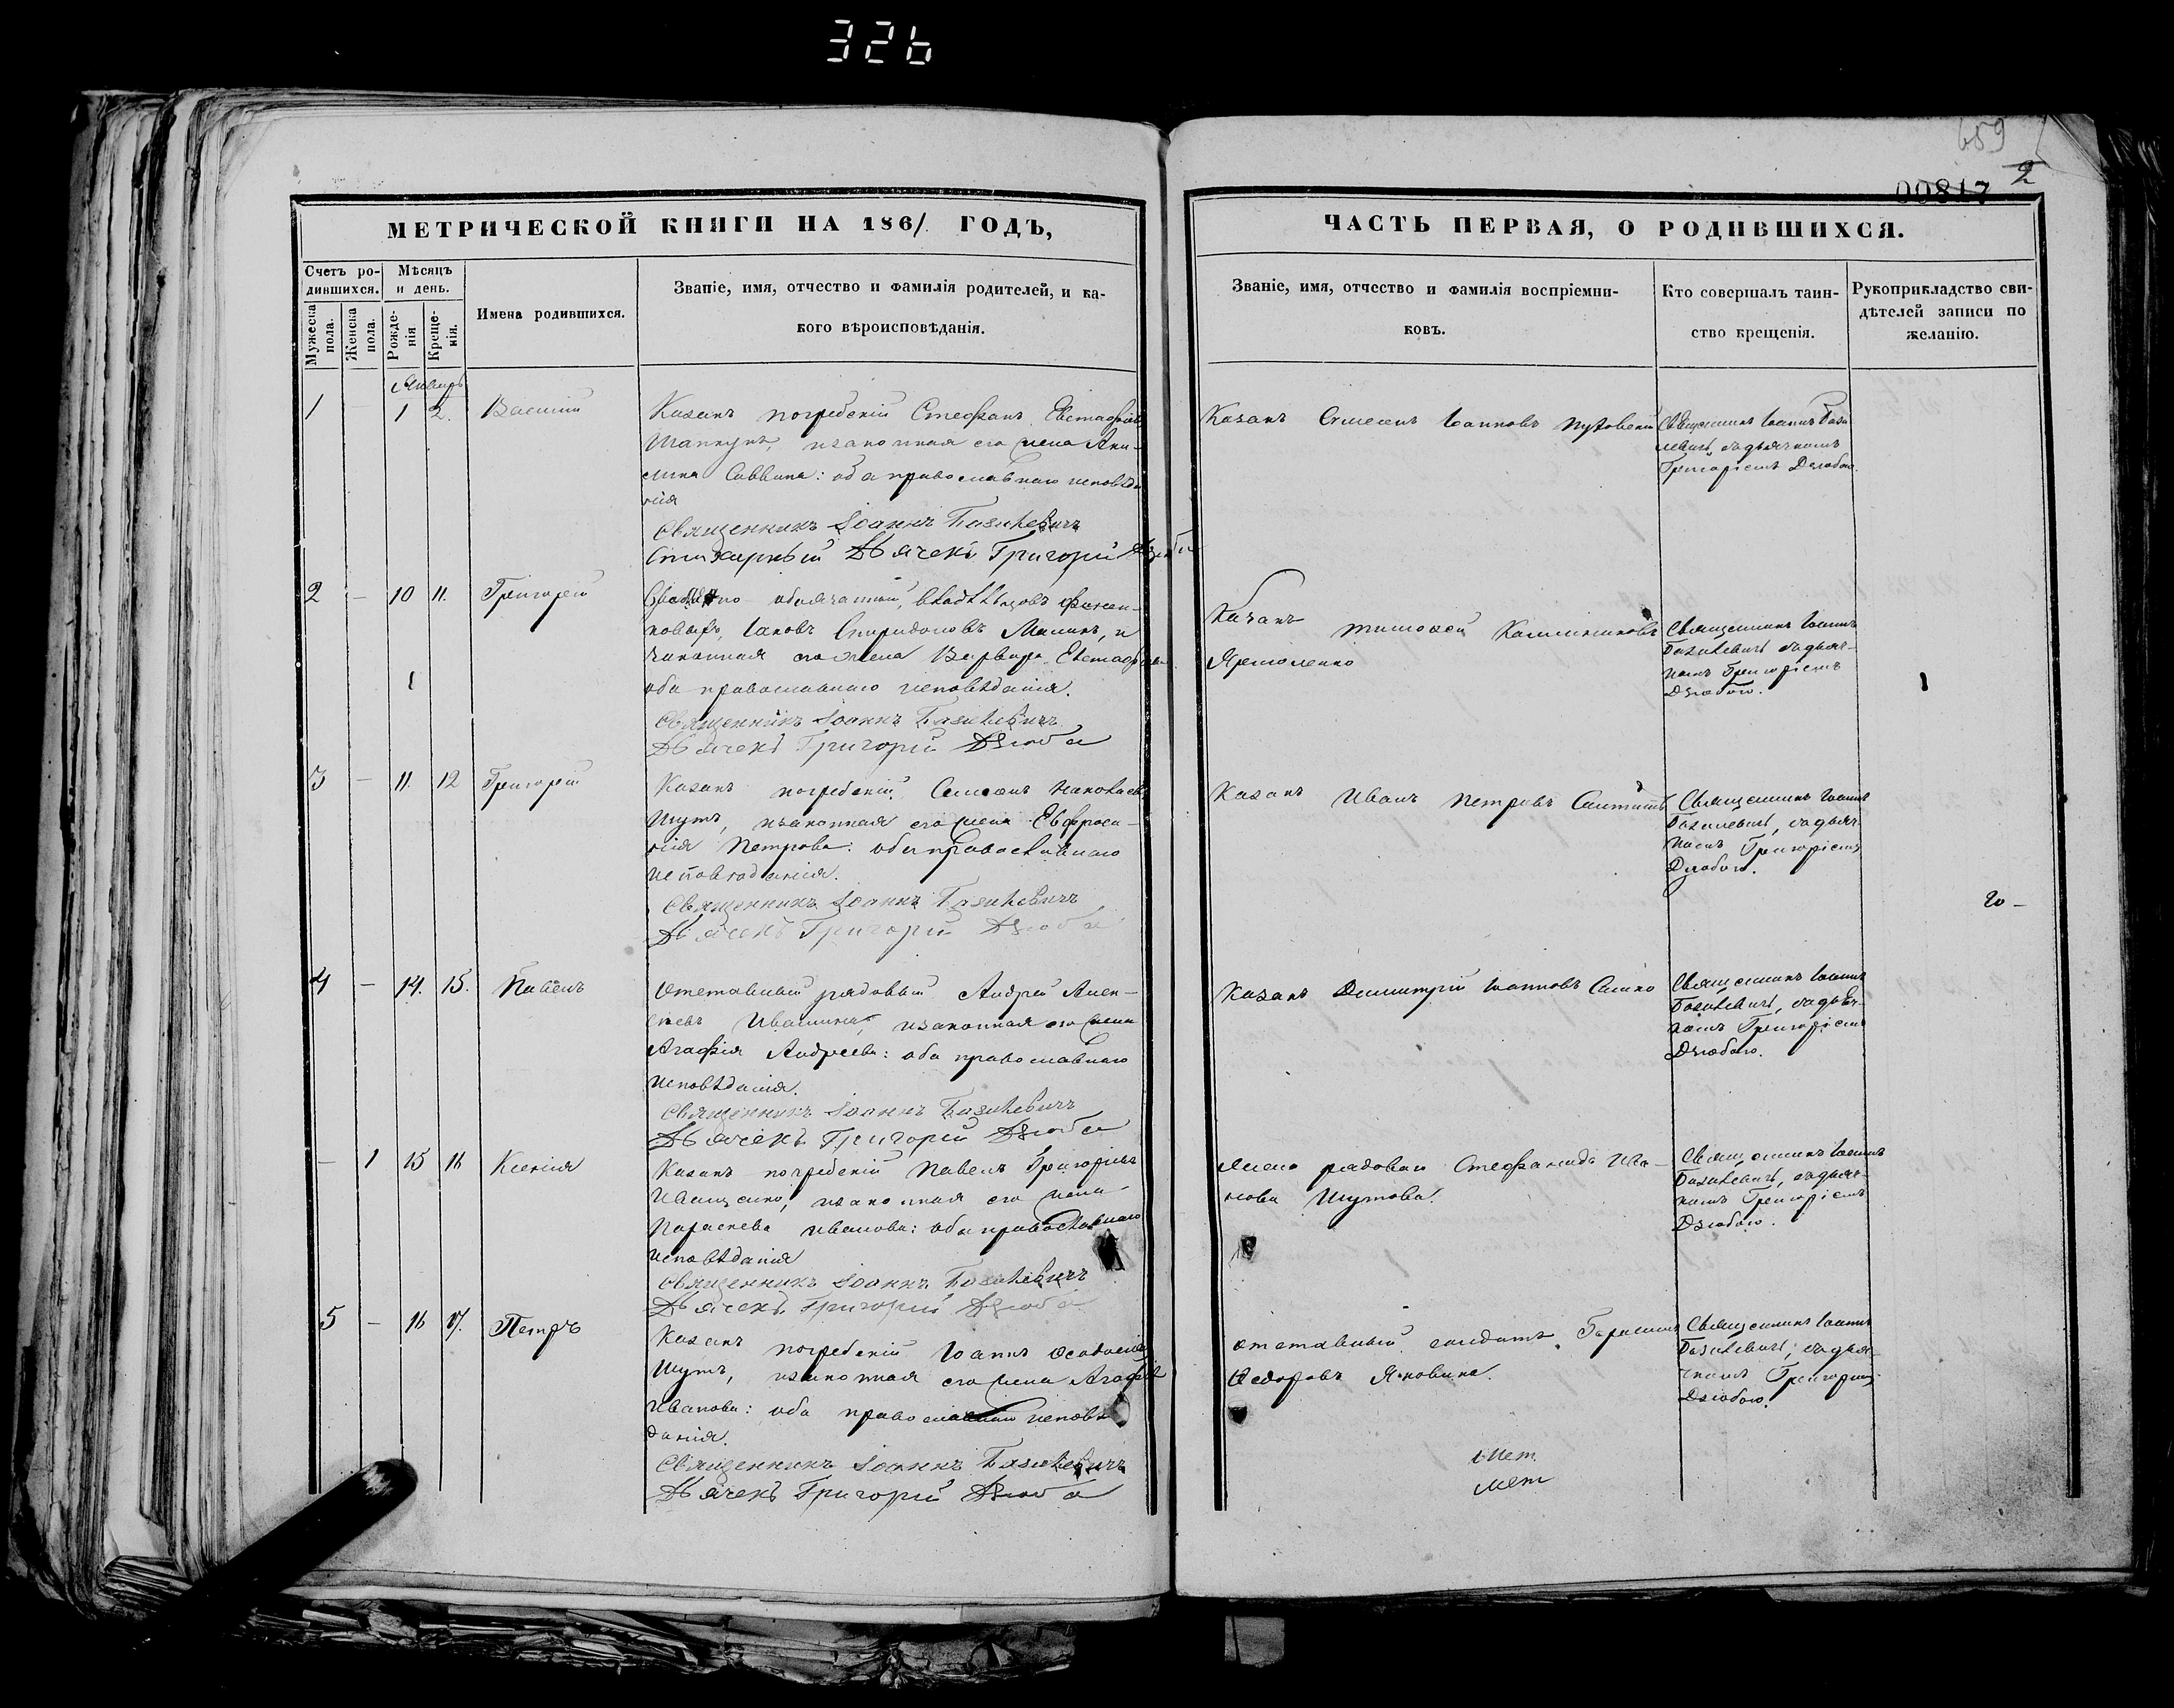 326
659
2
00817
МЕТРИЧЕСКОЙ КНИГИ НА 1861. ГОДЪ,
Счетъ ро-
дившихся.
Мѣсяцъ
и день.
Имена родившихся.
Званіе, имя, отчество и фамилія родителей, и ка-
кого вѣроисповѣданія.
Мужеска
пола.
Женска
пола.
Рожде-
нія
Креще-
нія.
ЧАСТЬ ПЕРВАЯ, О РОДИВШИХСЯ.
Званіе, имя, отчество и фамилія воспріемни-
ковъ.
Кто совершалъ таин-
ство крещенія.
Рукоприкладство сви-
дѣтелей записи по
желанію.
Январь
1 1 2. Василій
Казакъ погребскій Стефанъ Евстафіевъ
изаконная его жена Аки-
лина Саввина: оба православнаго исповѣда
нія
Священникъ Іоаннъ Базилевичъ
Стихарный Дьячекъ Григорій Дзюба
Казакъ Симеонъ Іоанновъ
Священникъ Іоаннъ Бази
левичъ, съдьячкомъ
Григоріемъ Дзюбою.
2 – 10 11. Григорій
Іаковъ Спиридоновъ и
законная его жена Варвара Евстафіева
оба православнаго исповѣданія.
Священникъ Іоаннъ Базилевичъ
Дьячекъ Григорій Дзюба
Казакъ Тимофей
Ярмоленко
Священникъ Іоаннъ
Базилевичъ съдьяч-
комъ Григоріемъ
Дзюбою.
3 – 11. 12 Григорій
Казакъ погребскій Симеонъ
Шутъ, изаконная его жена Евфроси-
нія Петрова: оба православнаго
исповѣданія.
Священникъ Іоаннъ Базилевичъ
Дьячекъ Григорій Дзюба
Казакъ Иванъ Петровъ
Священникъ Іоаннъ
Базилевичъ, съдьяч-
комъ Григоріемъ
Дзюбою.
4 – 14. 15. Павелъ
Отставный рядовый Андрей Алек-
сѣевъ изаконная его жена
Агафія Андреева: оба православнаго
исповѣданія.
Священникъ Іоаннъ Базилевичъ
Дьячекъ Григорій Дзюба
Казакъ Димитрій Іоанновъ
Священникъ Іоаннъ
Базилевичъ, съдьяч-
комъ Григоріемъ
Дзюбою.
– 1 15 16 Ксенія
Казакъ погребскій Павелъ Григорьевъ
Иващенко, изаконная его жена
Параскева Иванова: оба православнаго
исповѣданія
Священникъ Іоаннъ Базилевичъ
Дьячекъ Григорій Дзюба
Жена рядоваго Стефанида Ива-
нова Шутова.
Священникъ Іоаннъ
Базилевичъ, съдьяч-
комъ Григоріемъ
Дзюбою.
5 – 16 17. Петръ
Казакъ погребскій Іоаннъ Ѳеодосіевъ
Шутъ, изаконная его жена Агафія
Иванова: оба православнаго исповѣ
данія.
Священникъ Іоаннъ Базилевичъ
Дьячекъ Григорій Дзюба
Отставный солдатъ Герасимъ
Ѳедоровъ
Священникъ Іоаннъ
Базилевичъ, съдья-
чкомъ Григоріемъ
Дзюбою.